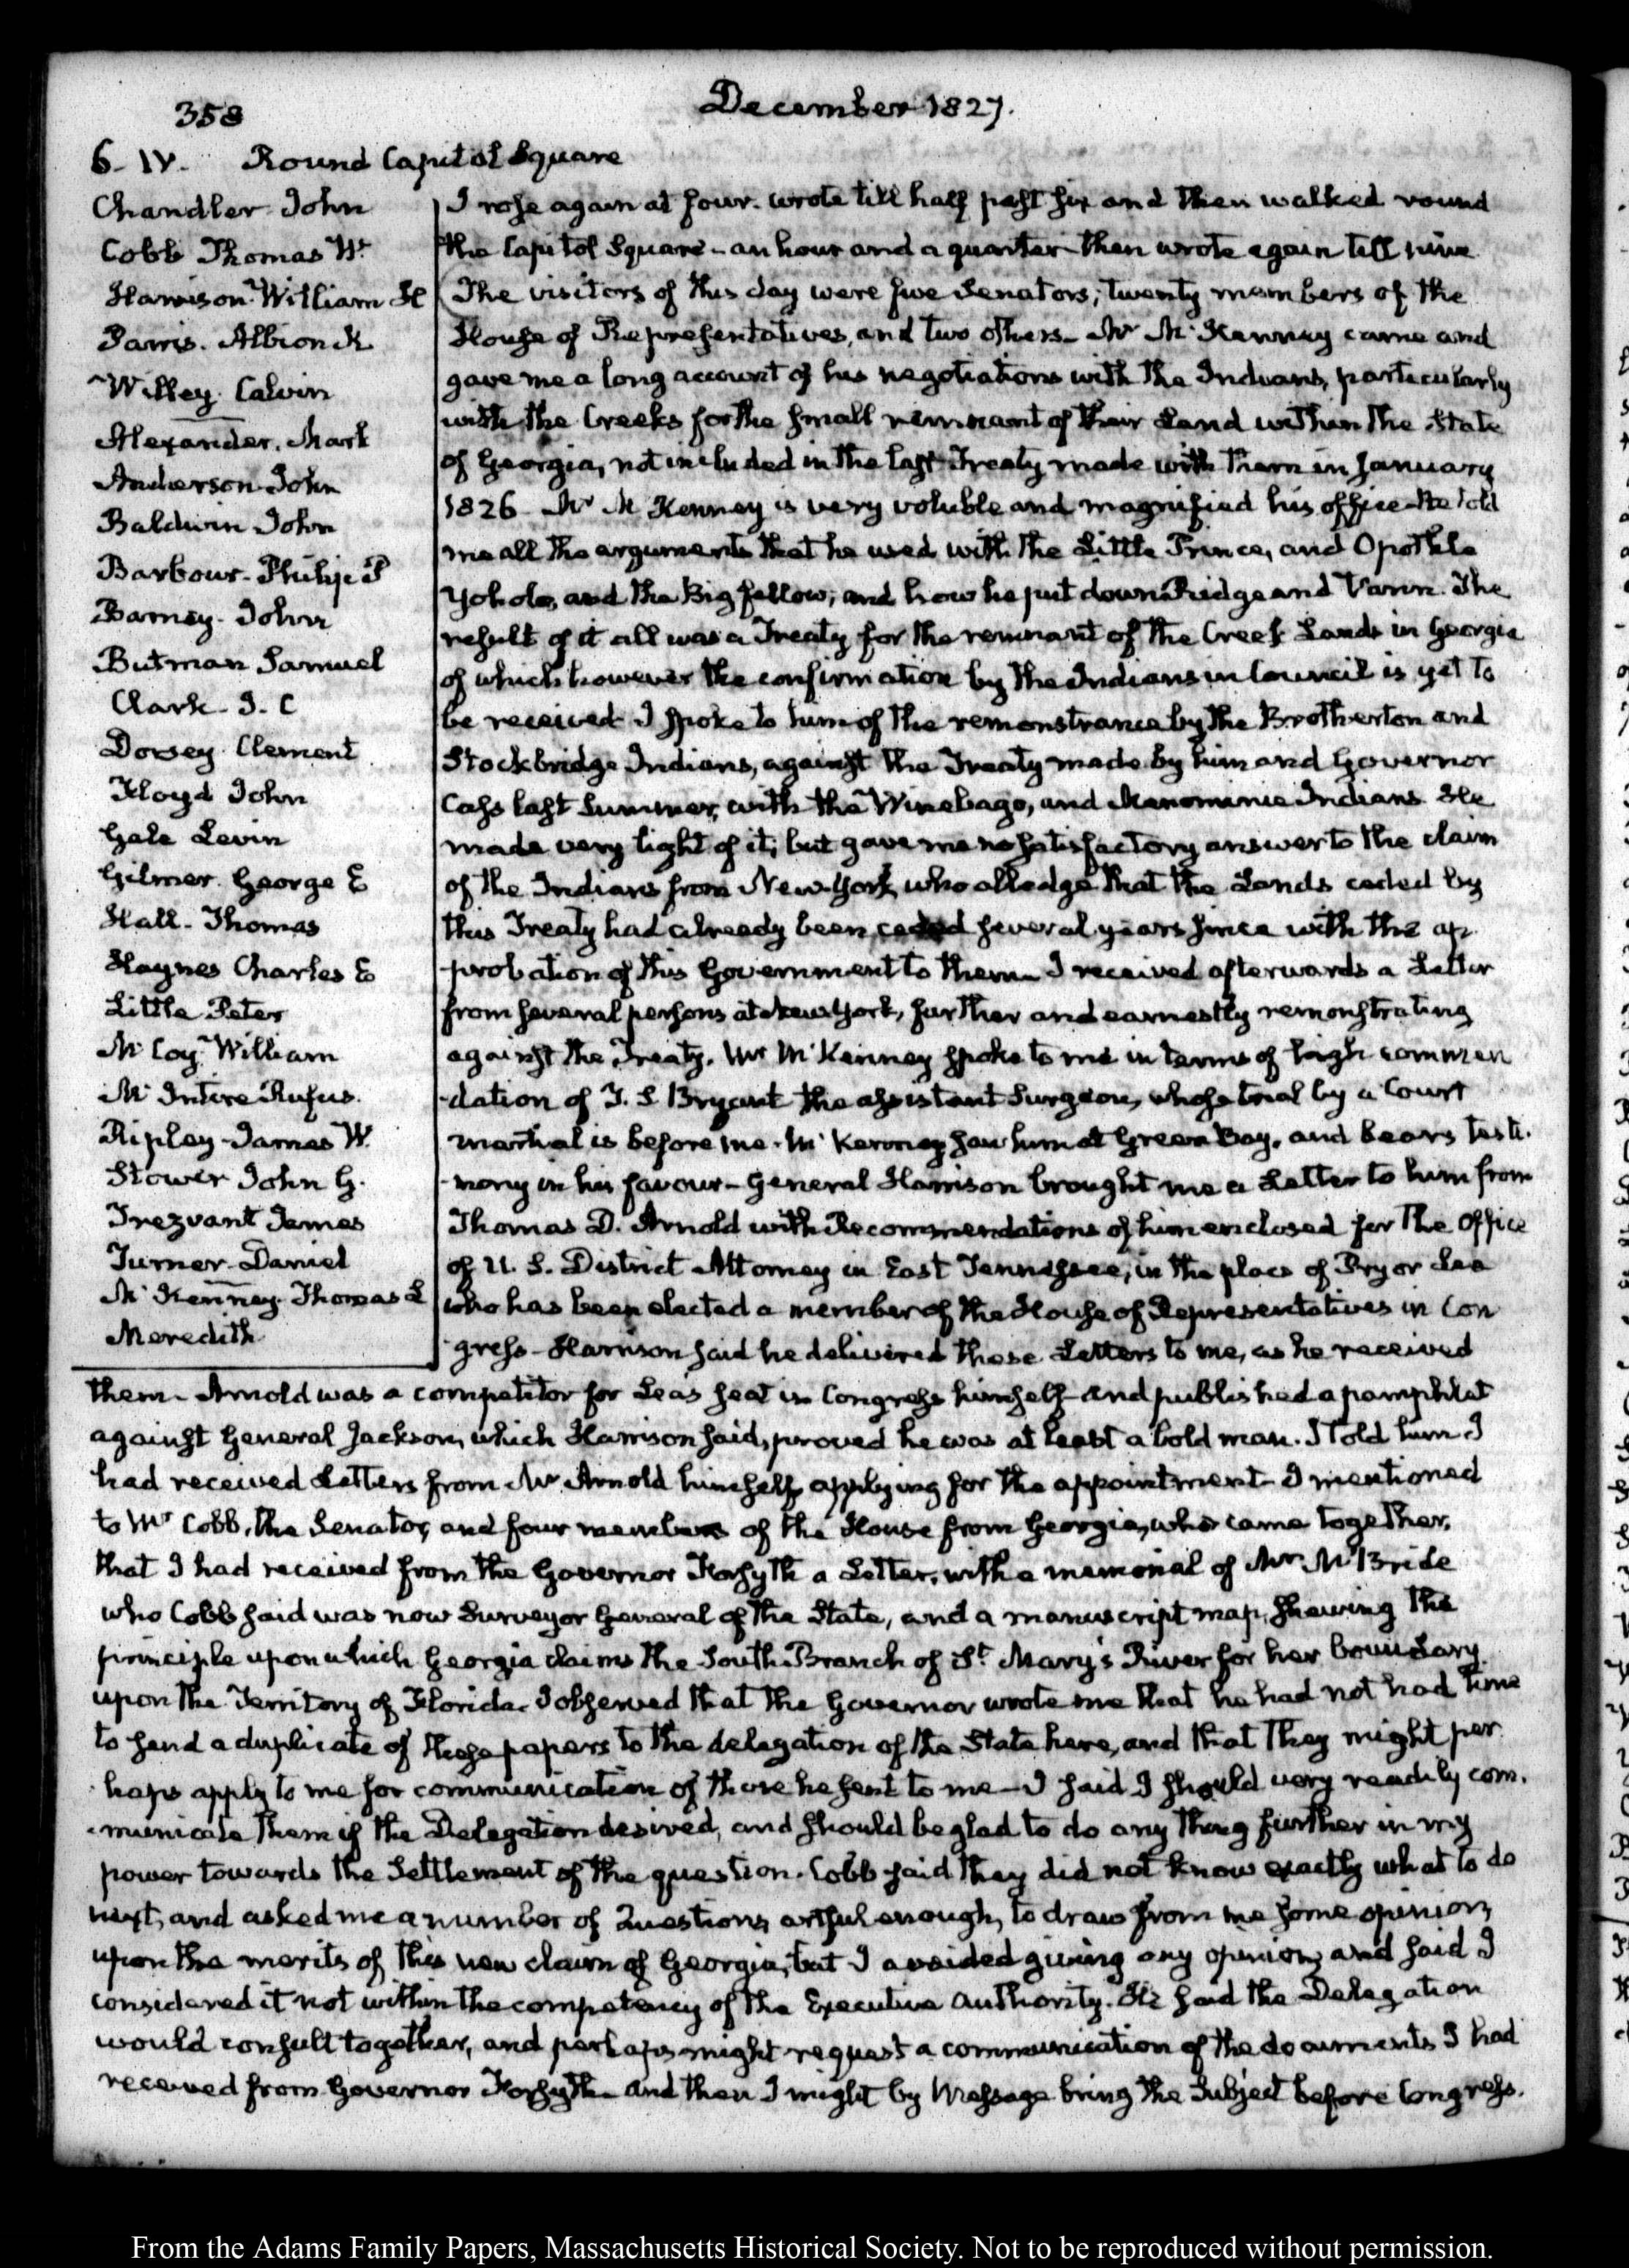 358
December 1827.
6. IV. Round Capitol Square
Chandler John
Cobb Thomas W.
Harrison William H
Parris. Albion K
Willey. Calvin
Alexander. Mark
Anderson John
Baldwin John
Barbour. Philip P
Barney. John
Butman Samuel
Clark. J. C
Dorsey Clement
Floyd John
Gale Levin
Gilmer. George R
Hall. Thomas
Haynes Charles E
Little Peter
McCoy William
McIntire Rufus.
Ripley James W.
Stower John G.
Trezvant James
Turner Daniel
McKenney Thomas L
Meredith
I rose again at four. wrote till half past six and then walked round
the Capitol Square – an hour and a quarter then wrote again till nine
The visitors of this day were five Senators, twenty members of the
House of Representatives, and two others – Mr McKenney came and
gave me a long account of his negotiations with the Indians, particularly
with the Creeks for the small remnant of their Land within the State
of Georgia, not included in the last Treaty made with them in January
1826 – Mr McKenney is very voluble and magnified his office – He told
me all the arguments that he used with the Little Prince, and Opothle
Yoholo, and the Big fellow; and how he put down Ridge and Vann. The
result of it all was a Treaty for the remnant of the Creek Lands in Georgia
of which however the confirmation by the Indians in Council is yet to
be received I spoke to him of the remonstrance by the Brotherton and
Stockbridge Indians, against the Treaty made by him and Governor
Cass last Summer, with the Winebago, and Menominie Indians. He
made very light of it; but gave me no satisfactory answer to the claim
of the Indians from New York, who alledge that the Lands ceded by
this Treaty had already been ceded several years since with the ap
probation of this Government to them – I received afterwards a Letter
from several persons at New York, further and earnestly remonstrating
against the Treaty. Mr McKenney spoke to me in terms of high commen
dation of T. S Bryant the assistant Surgeon, whose trial by a Court
martial is before me. McKenney saw him at Green Bay, and bears testi.
mony in his favour – General Harrison brought me a Letter to him from
Thomas D. Arnold with Recommendations of him enclosed for the Office
of U. S. District Attorney in East Tennessee, in the place of Pryor Lea
who has been elected a member of the House of Representatives in Con
gress – Harrison said he delivered these Letters to me, as he received
them – Arnold was a competitor for Lea's seat in Congress himself – and published a pamphlet
against General Jackson, which Harrison said, proved he was at least a bold man. I told him I
had received Letters from Mr Arnold himself, applying for the appointment – I mentioned
to Mr Cobb, the Senator, and four members of the House from Georgia, who came together,
that I had received from the Governor Forsyth a Letter, with a memorial of Mr McBride
who Cobb said was now Surveyor General of the State, and a manuscript map, shewing the
principle upon which Georgia claims the South Branch of St. Mary's River for her boundary
upon the Territory of Florida. I observed that the Governor wrote me that he had not had time
to send a duplicate of these papers to the delegation of the State here, and that they might per
haps apply to me for communication of those he sent to me – I said I should very readily com.
municate them if the Delegation desired, and should be glad to do any thing further in my
power towards the Settlement of the question. Cobb said they did not know exactly what to do
next, and asked me a number of Questions, artful enough, to draw from me some opinion,
upon the merits of this new claim of Georgia; but I avoided giving any opinion, and said I
considered it not within the competency of the Executive authority. He said the Delegation
would consult together, and perhaps might request a communication of the documents I had
received from Governor Forsyth – and then I might by Message bring the Subject before Congress.
From the Adams Family Papers, Massachusetts Historical Society. Not to be reproduced without permission.